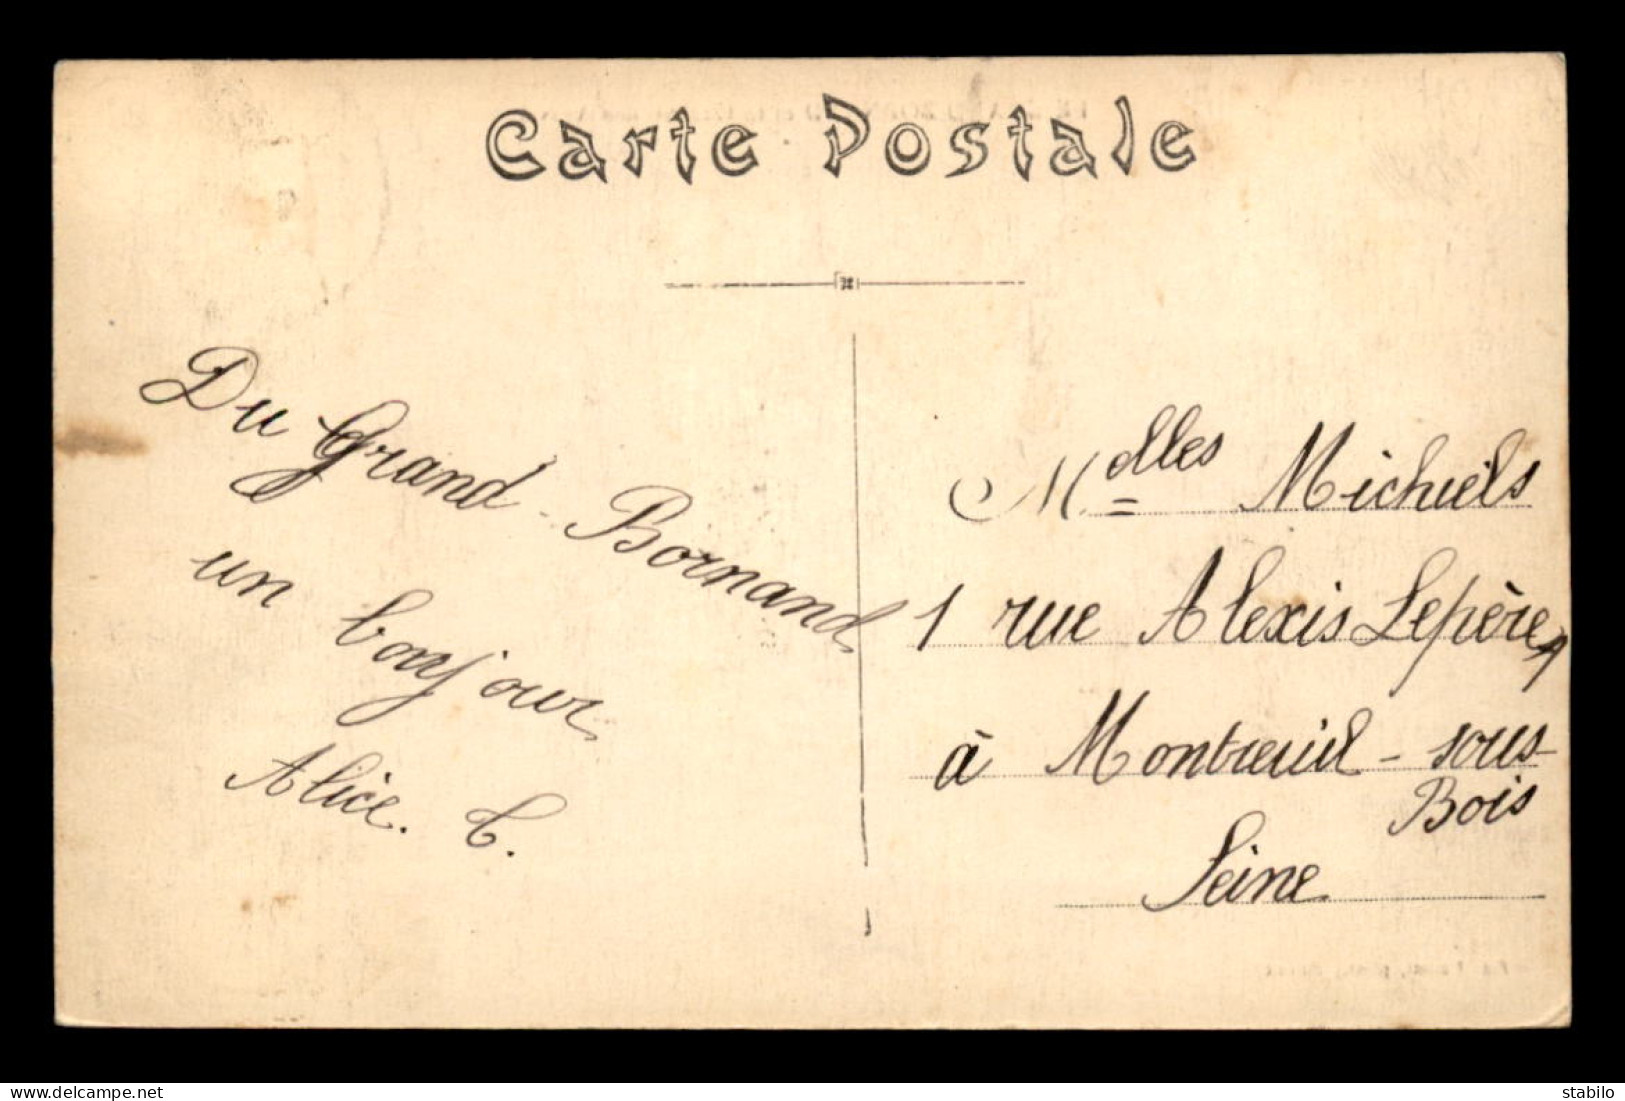 Carte Postale
Du Grand-Bornand
un bonjour
Alice. C.
Mdlles Michiels
1 rue Alexis Lepère,
à Montreuil-sous-
Bois
Seine
delcampe.net
stabilo